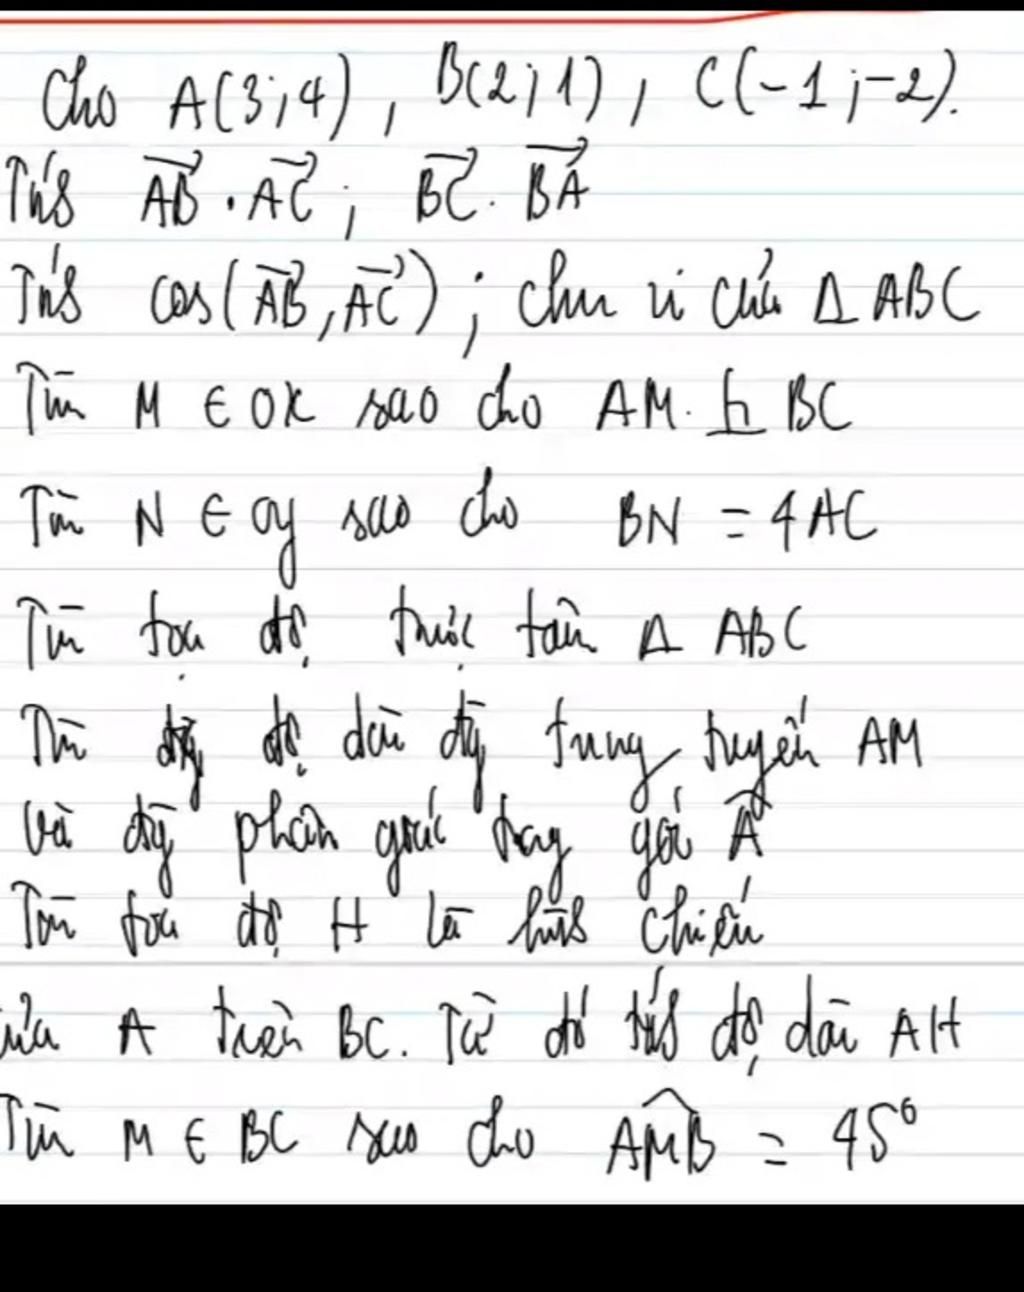 Cho A(3;4), B(2;1), C(-1;-2).
Tính AB . AC ; BC . BA
Tính cos(AB, AC) ; chu vi của Δ ABC
Tìm M ∈ Ox sao cho AM ⊥ BC
Tìm N ∈ Oy sao cho BN = 4AC
Tìm tọa độ trực tâm Δ ABC
Tìm độ dài đg trung tuyến AM
và đg phân giác trong góc A
Tìm tọa độ H là hình chiếu
của A trên BC. Từ đó tính độ dài AH
Tìm M ∈ BC sao cho AMB = 45°